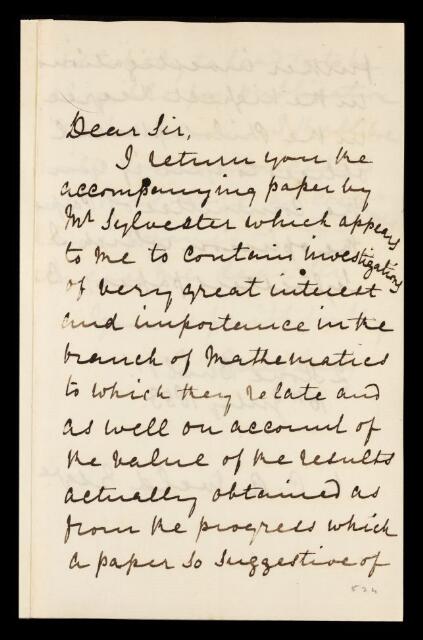 Dear Sir,
I return you the
accompanying paper by
Mr Sylvester which appears
to me to contain investigations
of very great interest
and importance in the
branch of Mathematics
to which they relate and
as well on account of
the value of the results
actually obtained as
from the progress which
a paper so suggestive of
524